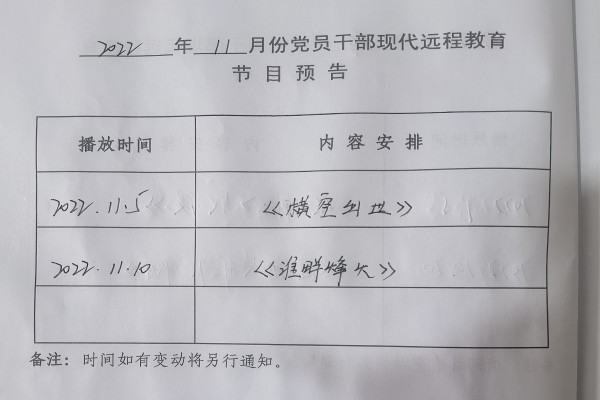 2022 年 11 月份党员干部现代远程教育
节目预告
播放时间 内容安排
2022.11.5 《横空出世》
2022.11.10 《淮畔烽火》
备注：时间如有变动将另行通知。